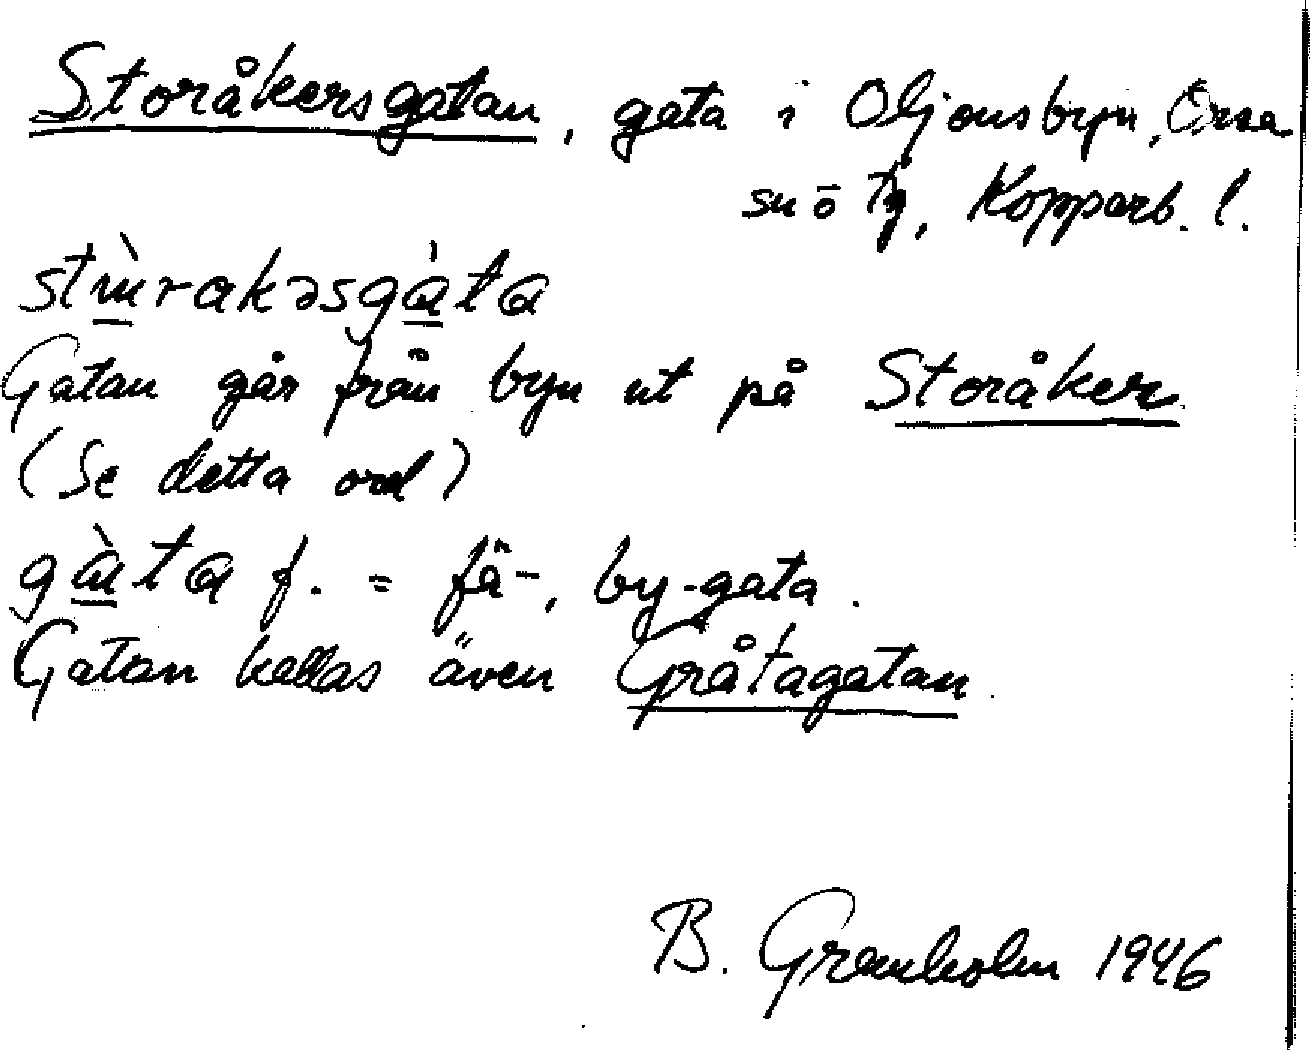 Storåkersgatan, gata i Oljonsbyn, Orsa
sn o tg, Kopparb. l.
stùrakəsgàta
Gatan går från byn ut på Storåker
(Se detta ord)
gàta f. = fä-, by-gata.
Gatan kallas även Gråtagatan.
B. Granholm 1946